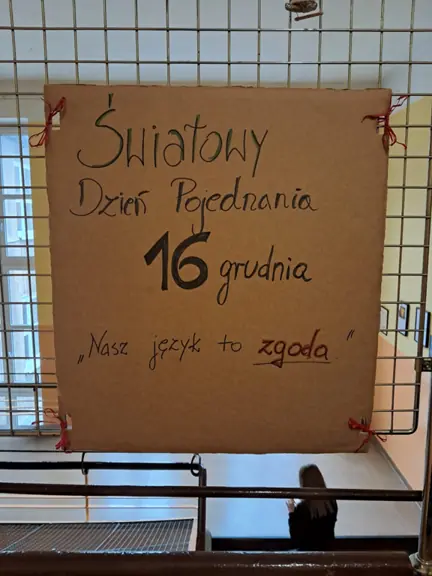 Światowy
Dzień Pojednania
16 grudnia
„Nasz język to zgoda."